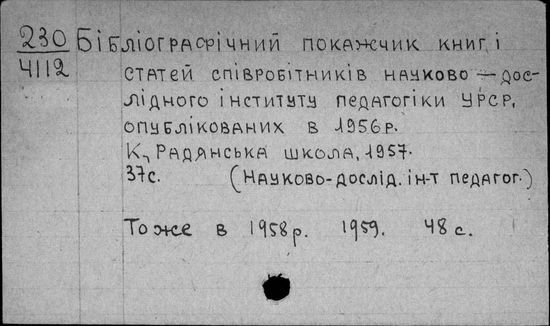 230 Бібліографічний покажчик книг і
4112 статей співробітників науково-дос-
лідного інституту педагогіки УРСР,
опублікованих в 1956р.
К., Радянська школа, 1957.
37с. (Науково-дослід. ін-т педагог.)
То же в 1958р. 1959. 48 с.